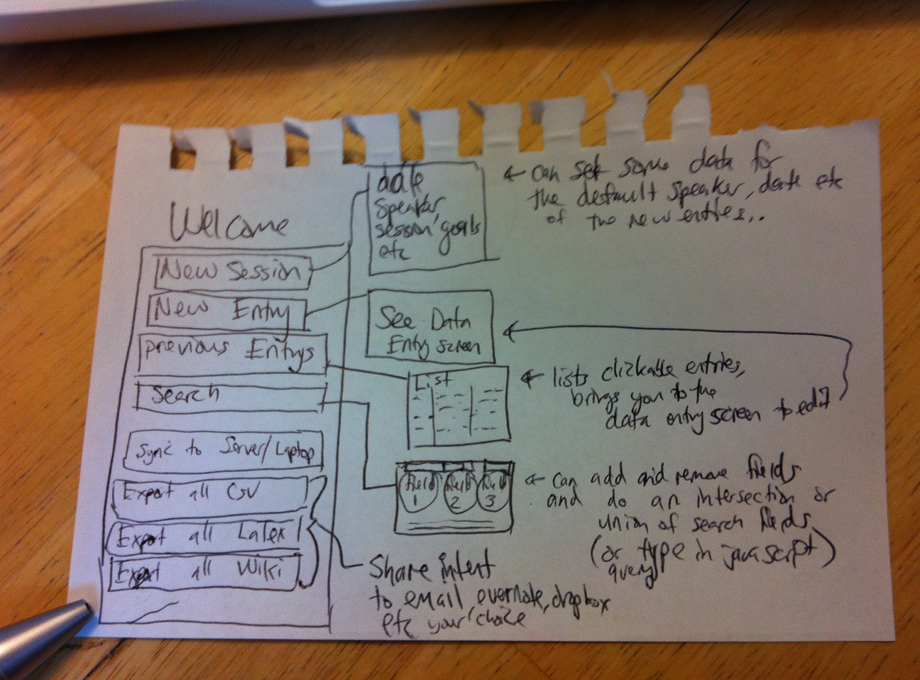 Welcome
New Session
New Entry
previous Entrys
Search
Sync to Server/Laptop
Export all CSV
Export all LaTex
Export all Wiki
date
speaker,
session, goals
etc
← can set some data for
the default speaker, date etc
of the new entries..
See Data
Entry screen
List
← lists clickable entries,
brings you to the
data entry screen to edit
field
1
field
2
field
3
← can add and remove fields
and do an intersection or
union of search fields
(or type in javascript)
query
Share intent
to email, evernote, dropbox
etc your choice